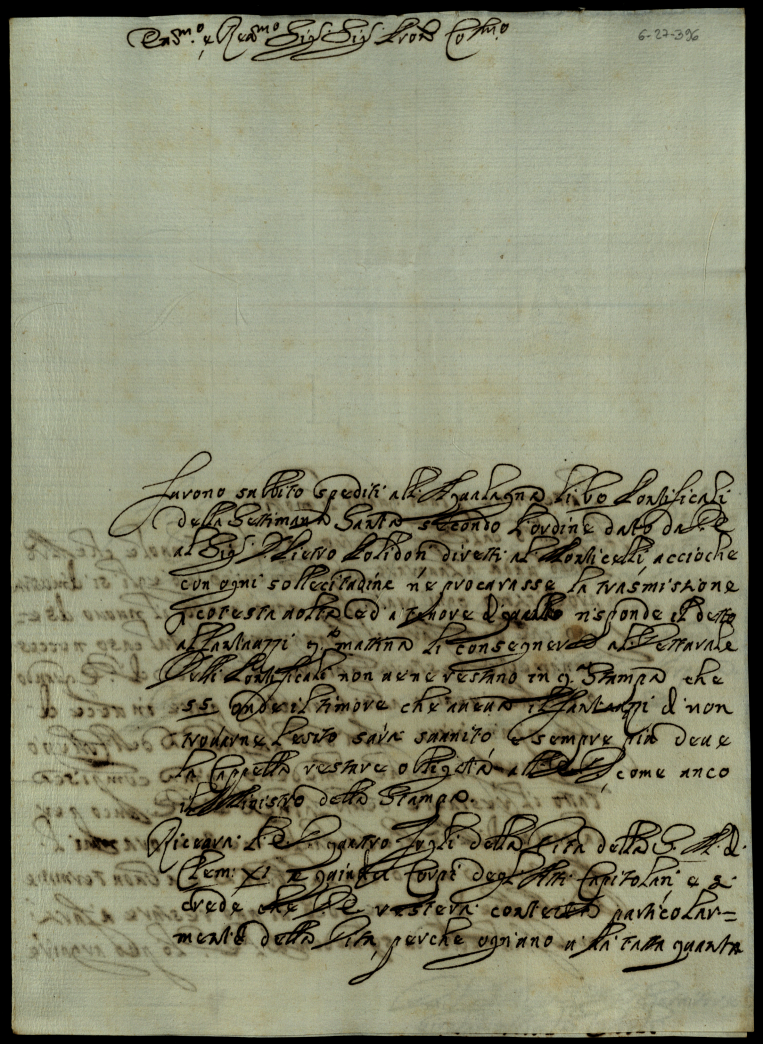 Em.mo e Reu.mo Sig.r Sig.r Pron Col.mo
6-27-396
Furono subbito spediti all' Aqualagna li 60 Pontificali
della Settimana Santa secondo l'ordine dato da V. E.
al Sig. Pietro Polidori diretti al Monticelli accioche
con ogni sollecitudine ne procurasse la trasmissione
a cotesta uolta ed a tenore di quello risponde il detto
al Fantauzzi q.ta mattina li consegnerà al Vetturale
Delli Pontificali non ue ne restano in q.ta Stampa che
55. onde il timore che aueua il Fantauzzi di non
trouarne l'esito sarà suanito e sempre più deue
la Cappella restare obligata all' E. V. come anco
il Ministro della Stampa.
Riceurà l' E. V. quattro Fogli della Vita della S. M. di
Clem: XI e quindici Corpi degl' Atti Capitolari e si
crede che V. E. resterà contenta particolar=
mente della Vita, perche ogn'uno u' hà fatta quanta